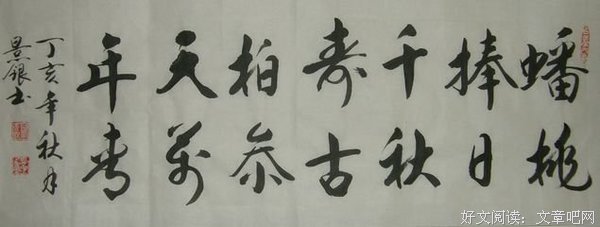 蟠桃
捧日
千秋
寿古
柏参
天萬
年青
丁亥年秋月
景银书
好文阅读：文章吧网